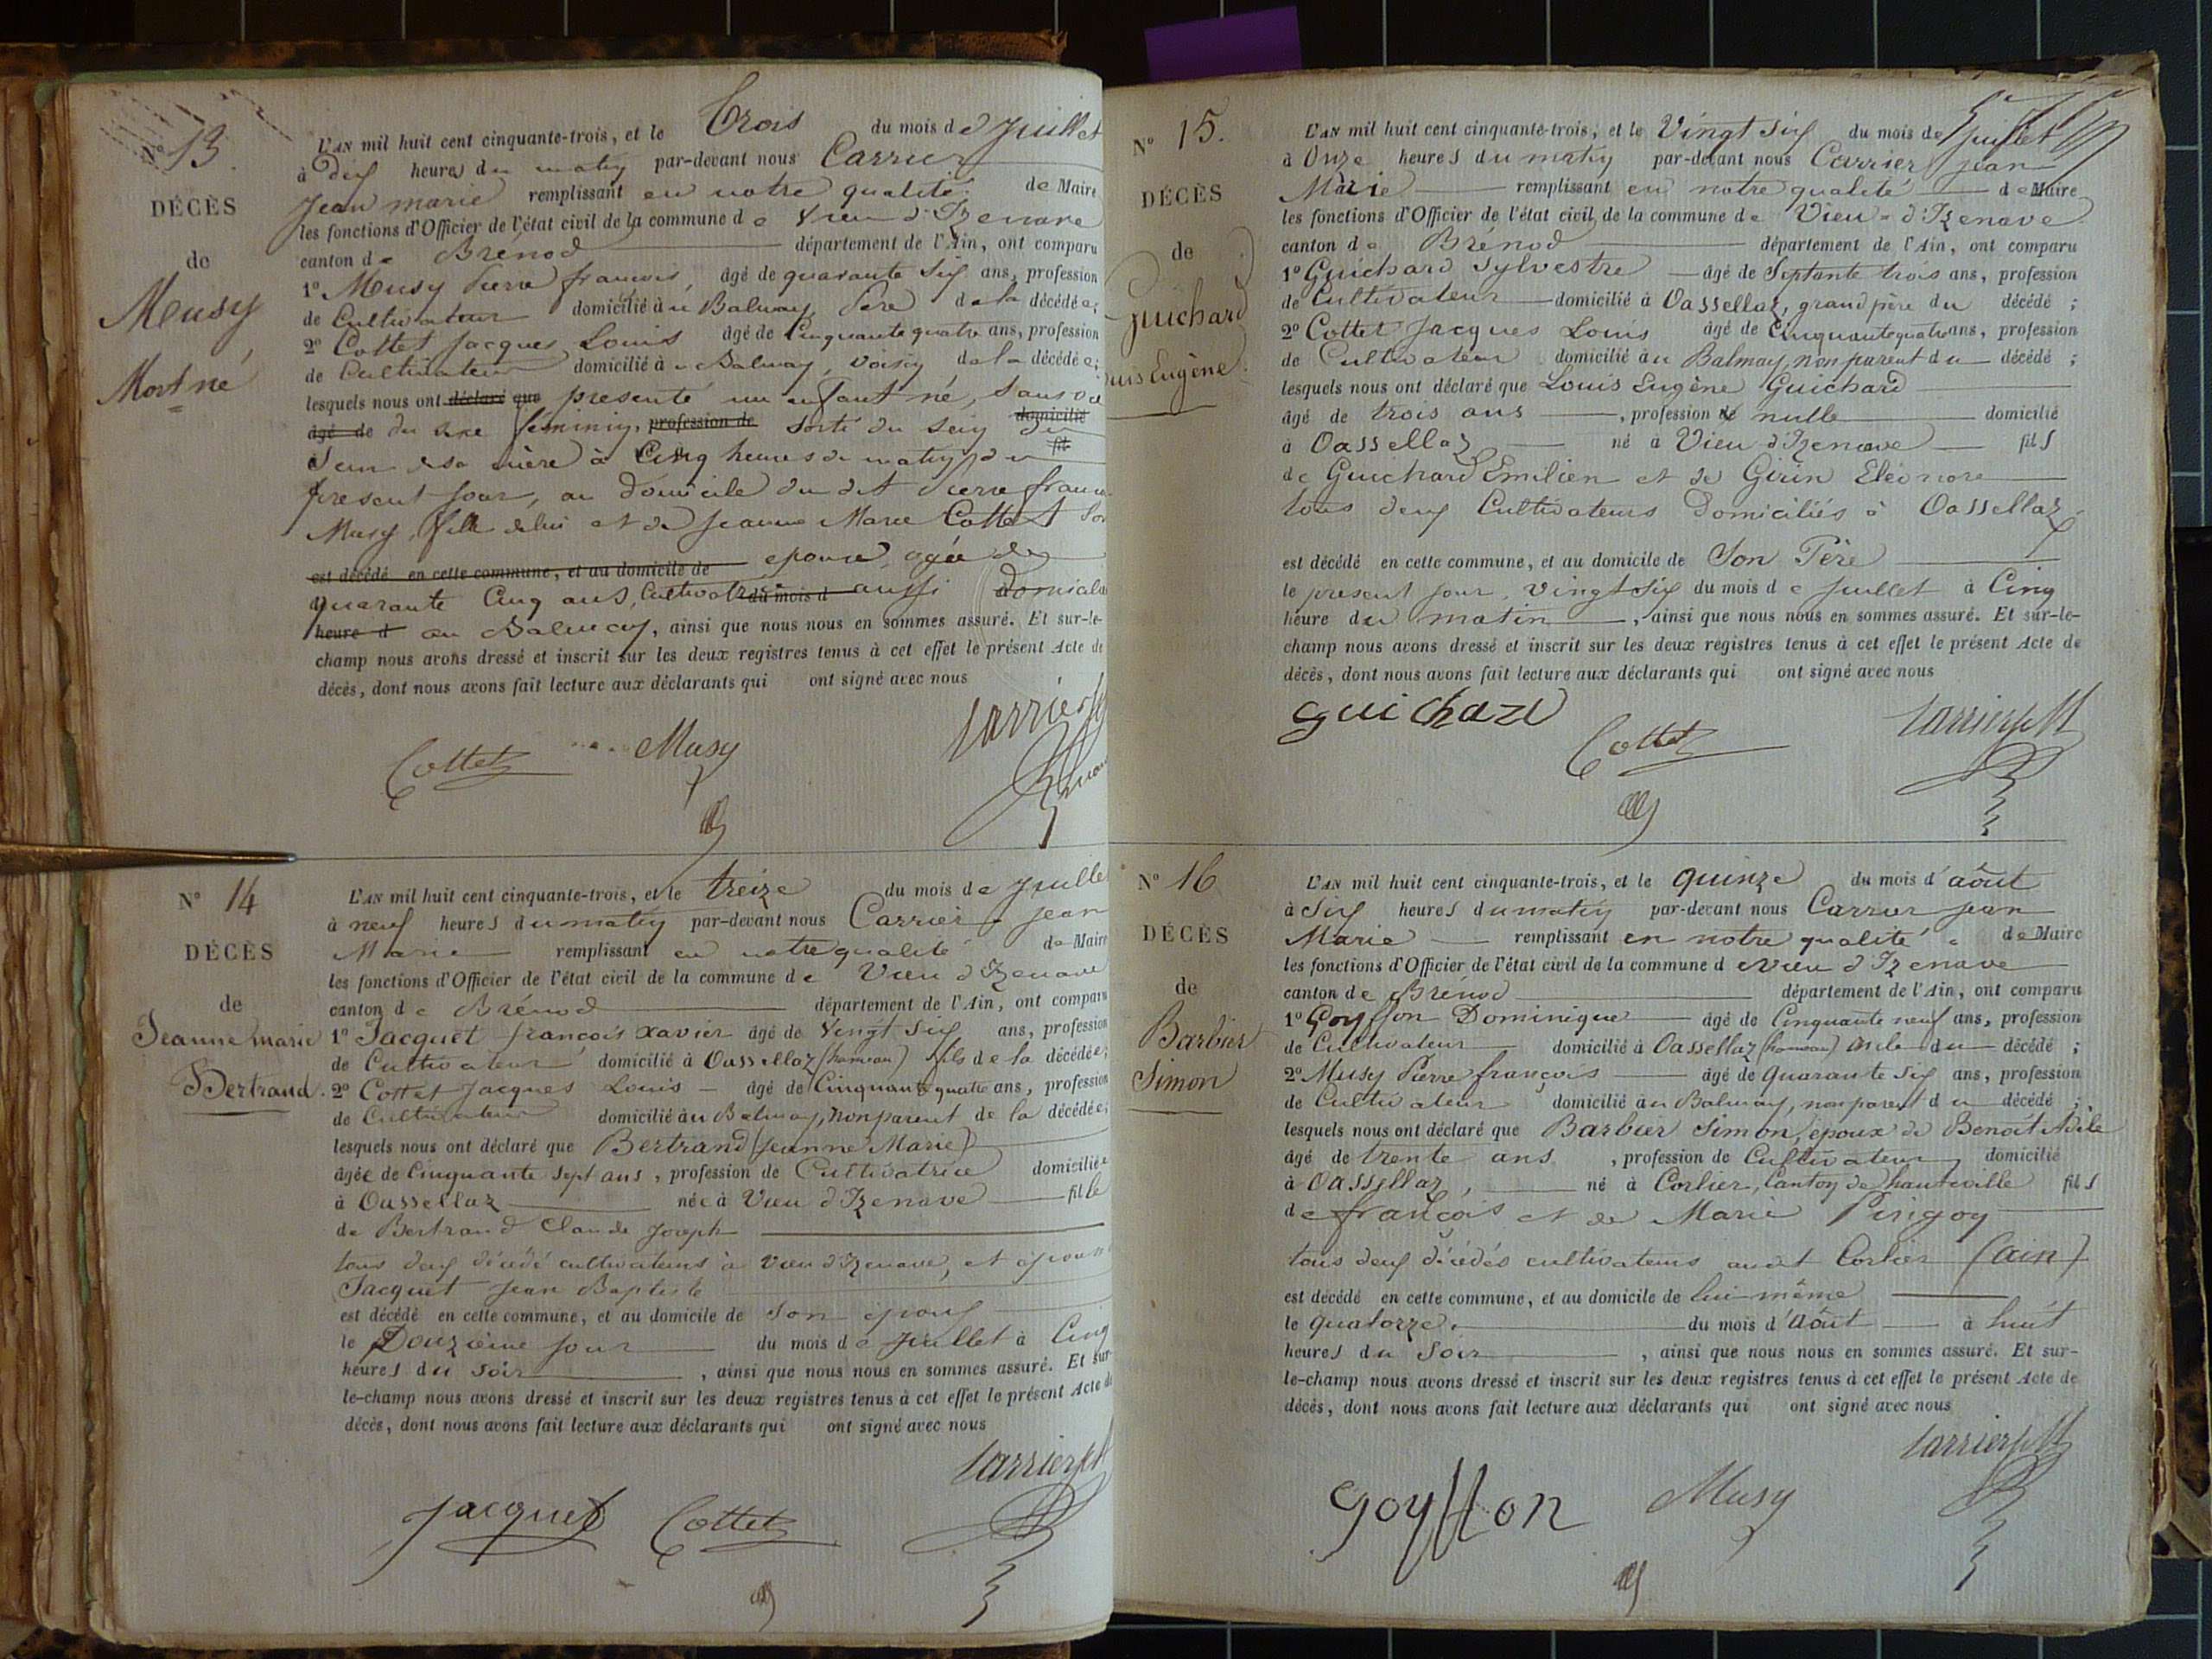 N° 13.
DÉCÈS
de
Meusy
Mort né
L'AN mil huit cent cinquante-trois, et le Trois du mois de Juillet
à dix heures du matin par-devant nous Carrier
Jean marie remplissant en notre qualité de Maire
les fonctions d'Officier de l'état civil de la commune de Vieu d'Izenave
canton de Brénod département de l'Ain, ont comparu
1° Meusy Pierre françois, âgé de quarante six ans, profession
de Cultivateur domicilié au Balmay, Père de la décédée;
2° Cottet Jacques Louis âgé de Cinquante quatre ans, profession
de Cultivateur domicilié au Balmay, voisin de la décédée;
lesquels nous ont déclaré que présenté un enfant né, sans vie
âgé de du sexe féminin, profession de sorti du sein domicilié
de sa mère à Cinq heures du matin du fil
présent jour, au domicile du dit Pierre françois
Musy, fille de lui et de Jeanne Marie Cottet Son
est décédé en cette commune, et au domicile de épouse, agée de
quarante Cinq ans, Cultivatrice du mois d aussi domiciliée
heure d au Balmay, ainsi que nous nous en sommes assuré. Et sur-le-
champ nous avons dressé et inscrit sur les deux registres tenus à cet effet le présent Acte de
décès, dont nous avons fait lecture aux déclarants qui ont signé avec nous
Cottet Musy Carrier
N° 14
DÉCÈS
de
Jeanne marie
Bertrand.
L'AN mil huit cent cinquante-trois, et le treize du mois de Juillet
à neuf heures du matin par-devant nous Carrier Jean
Marie remplissant en notre qualité de Maire
les fonctions d'Officier de l'état civil de la commune de Vieu d'Izenave
canton de Brénod département de l'Ain, ont comparu
1° Jacquet françois Xavier âgé de Vingt six ans, profession
de Cultivateur domicilié à Oassellaz (hameau) fils de la décédée;
2° Cottet Jacques Louis âgé de Cinquante quatre ans, profession
de Cultivateur domicilié au Balmay, non parent de la décédée;
lesquels nous ont déclaré que Bertrand (Jeanne Marie)
âgée de Cinquante Sept ans, profession de Cultivatrice domiciliée
à Oassellaz née à Vieu d'Izenave fille
de Bertrand Claude Joseph
tous deux décédé cultivateurs à Vieu d'Izenave, et épouse
Jacquet Jean Baptiste
est décédé en cette commune, et au domicile de Son époux
le Douzième jour du mois de Juillet à Cinq
heures du soir, ainsi que nous nous en sommes assuré. Et sur-
le-champ nous avons dressé et inscrit sur les deux registres tenus à cet effet le présent Acte de
décès, dont nous avons fait lecture aux déclarants qui ont signé avec nous
Jacquet Cottet Carrier JM
N° 15.
DÉCÈS
de
Guichard
Louis Eugène.
L'AN mil huit cent cinquante-trois, et le Vingt six du mois de Juillet
à Onze heures du matin par-devant nous Carrier Jean
Marie remplissant en notre qualité de Maire
les fonctions d'Officier de l'état civil de la commune de Vieu-d'Izenave
canton de Brénod département de l'Ain, ont comparu
1° Guichard Sylvestre âgé de Septante trois ans, profession
de Cultivateur domicilié à Oassellaz, grand père du décédé;
2° Cottet Jacques Louis âgé de Cinquante quatre ans, profession
de Cultivateur domicilié au Balmay, non parent du décédé;
lesquels nous ont déclaré que Louis Eugène Guichard
âgé de trois ans, profession de nulle domicilié
à Oassellaz né à Vieu d'Izenave fils
de Guichard Emilien et de Girin Eléonore
tous deux Cultivateurs Domiciliés à Oassellaz
est décédé en cette commune, et au domicile de Son Père
le présent jour, vingt six du mois de Juillet à Cinq
heure du matin, ainsi que nous nous en sommes assuré. Et sur-le-
champ nous avons dressé et inscrit sur les deux registres tenus à cet effet le présent Acte de
décès, dont nous avons fait lecture aux déclarants qui ont signé avec nous
Guichard Cottet Carrier JM
N° 16
DÉCÈS
de
Barbier
Simon
L'AN mil huit cent cinquante-trois, et le quinze du mois d'août
à Six heures du matin par-devant nous Carrier Jean
Marie remplissant en notre qualité de Maire
les fonctions d'Officier de l'état civil de la commune de Vieu d'Izenave
canton de Brénod département de l'Ain, ont comparu
1° Goyffon Dominique âgé de Cinquante neuf ans, profession
de Cultivateur domicilié à Oassellaz (hameau) oncle du décédé;
2° Musy Pierre françois âgé de quarante six ans, profession
de Cultivateur domicilié au Balmay, non parent du décédé;
lesquels nous ont déclaré que Barbier Simon, époux de Benoît Adèle
âgé de trente ans, profession de Cultivateur domicilié
à Oassellaz, né à Corlier, Canton de hauteville fils
de françois et de Marie Pingoy
tous deux décédés cultivateurs audit Corlier (Ain)
est décédé en cette commune, et au domicile de lui même
le quatorze du mois d'Août à huit
heures du Soir, ainsi que nous nous en sommes assuré. Et sur-
le-champ nous avons dressé et inscrit sur les deux registres tenus à cet effet le présent Acte de
décès, dont nous avons fait lecture aux déclarants qui ont signé avec nous
Goyffon Musy Carrier JM